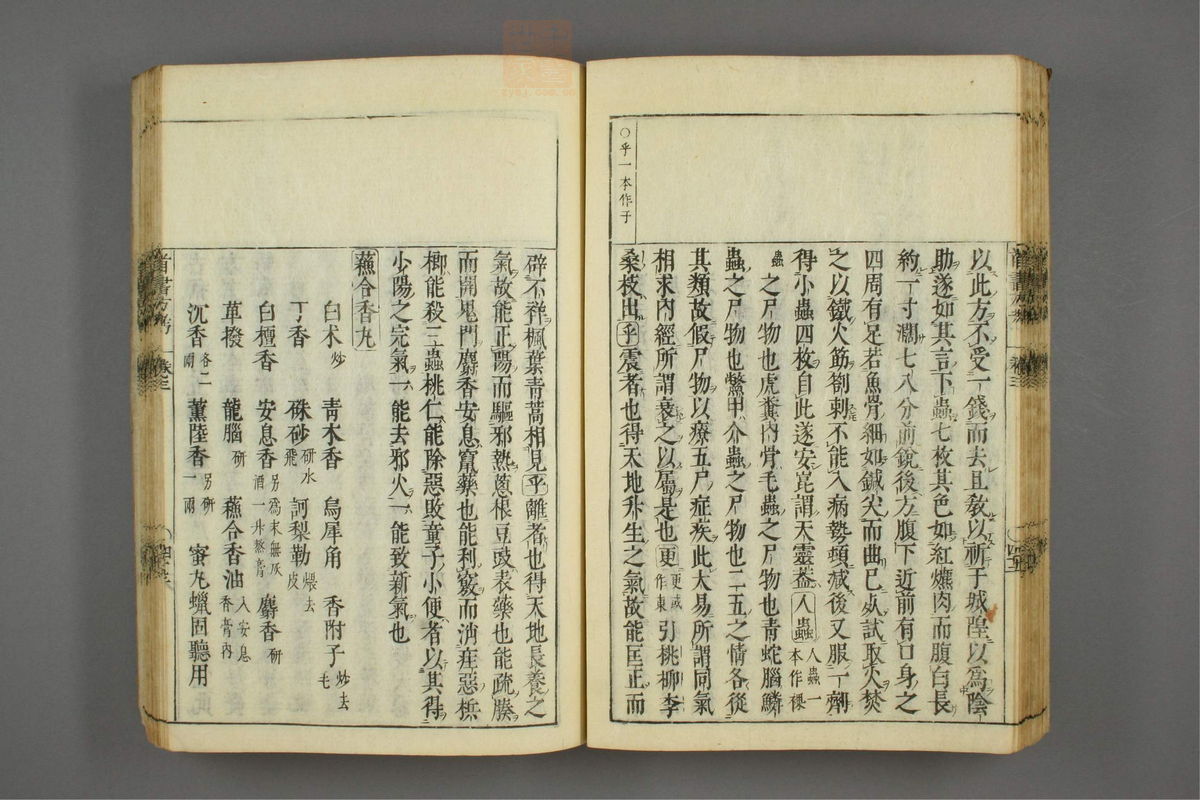 ○乎一本作子
以此方不受一錢而去且敎以祈于城隍以爲陰
助遂如其言下蟲七枚其色如紅爊肉而腹白長
約一寸濶七八分前銳後方腹下近前有口身之
四周有足若魚骨細如鍼尖而曲已死試取火焚
之以鐵火筯劄刺不能入病勢頓減後又服一劑
得小蟲四枚自此遂安崑謂天靈葢人蟲人蟲一本作裸蟲
之尸物也虎糞內骨毛蟲之尸物也青蛇腦鱗
蟲之尸物也鱉甲介蟲之尸物也二五之情各從
其類故假尸物以療五尸症疾此大易所謂同氣
相求內經所謂衰之以屬是也更更或作東引桃柳李
桑枝出乎震者也得天地升生之氣故能匡正而
辟不祥楓葉青蒿相見乎離者也得天地長養之
氣故能正陽而驅邪熱葱根豆豉表藥也能疏腠
而開鬼門麝香安息竄藥也能利竅而消疰惡檳
榔能殺三蟲桃仁能除惡敗童子小便者以其得
少陽之完氣一能去邪火一能致新氣也
蘓合香丸
白术炒 青木香 烏犀角 香附子炒去毛
丁香 硃砂研水飛 訶梨勒煨去皮
白檀香 安息香另爲末無灰酒一升熬膏 麝香研
蓽撥 龍腦研 蘓合香油入安息香膏內
沉香各二兩 薰陸香另研一兩 蜜丸蠟固聽用
首書方考
卷三
首書方考
卷三